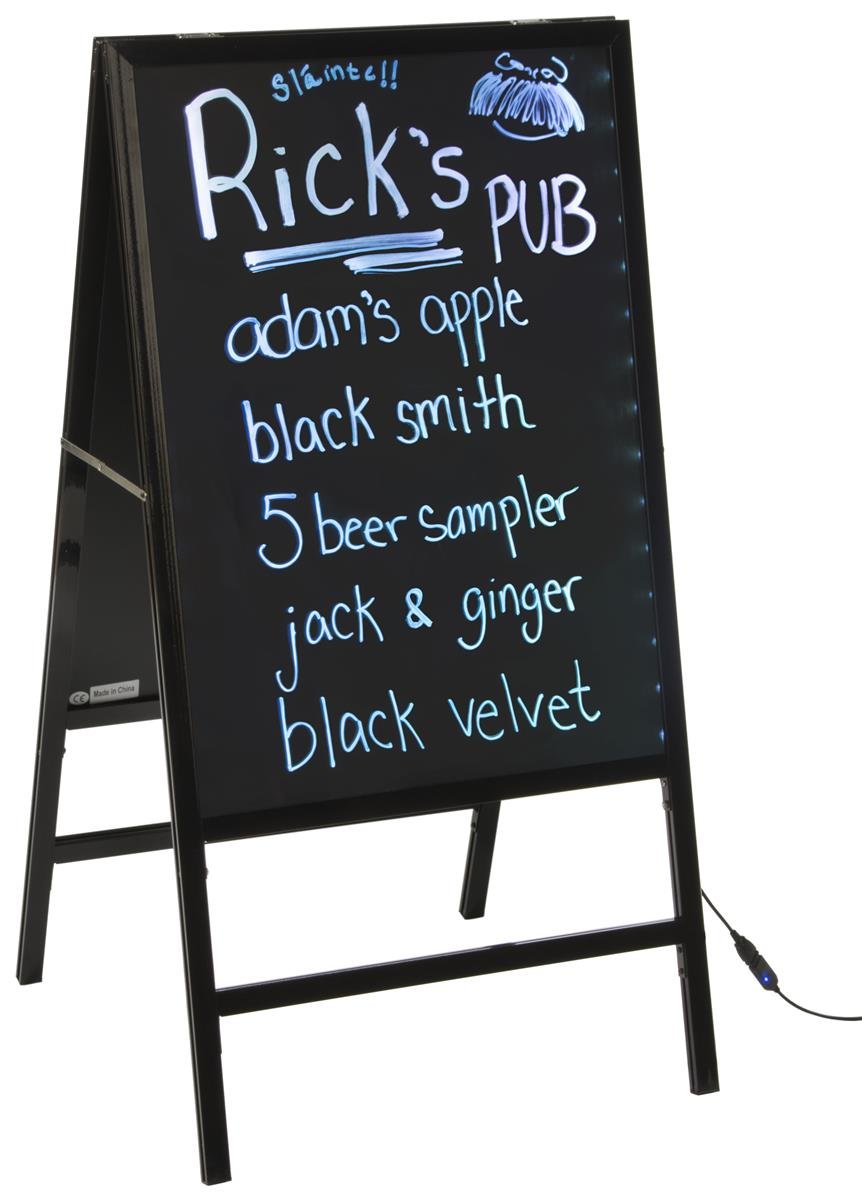 Sláinte!!
Rick's
PUB
adam's apple
black smith
5 beer sampler
jack & ginger
black velvet
CE Made in China